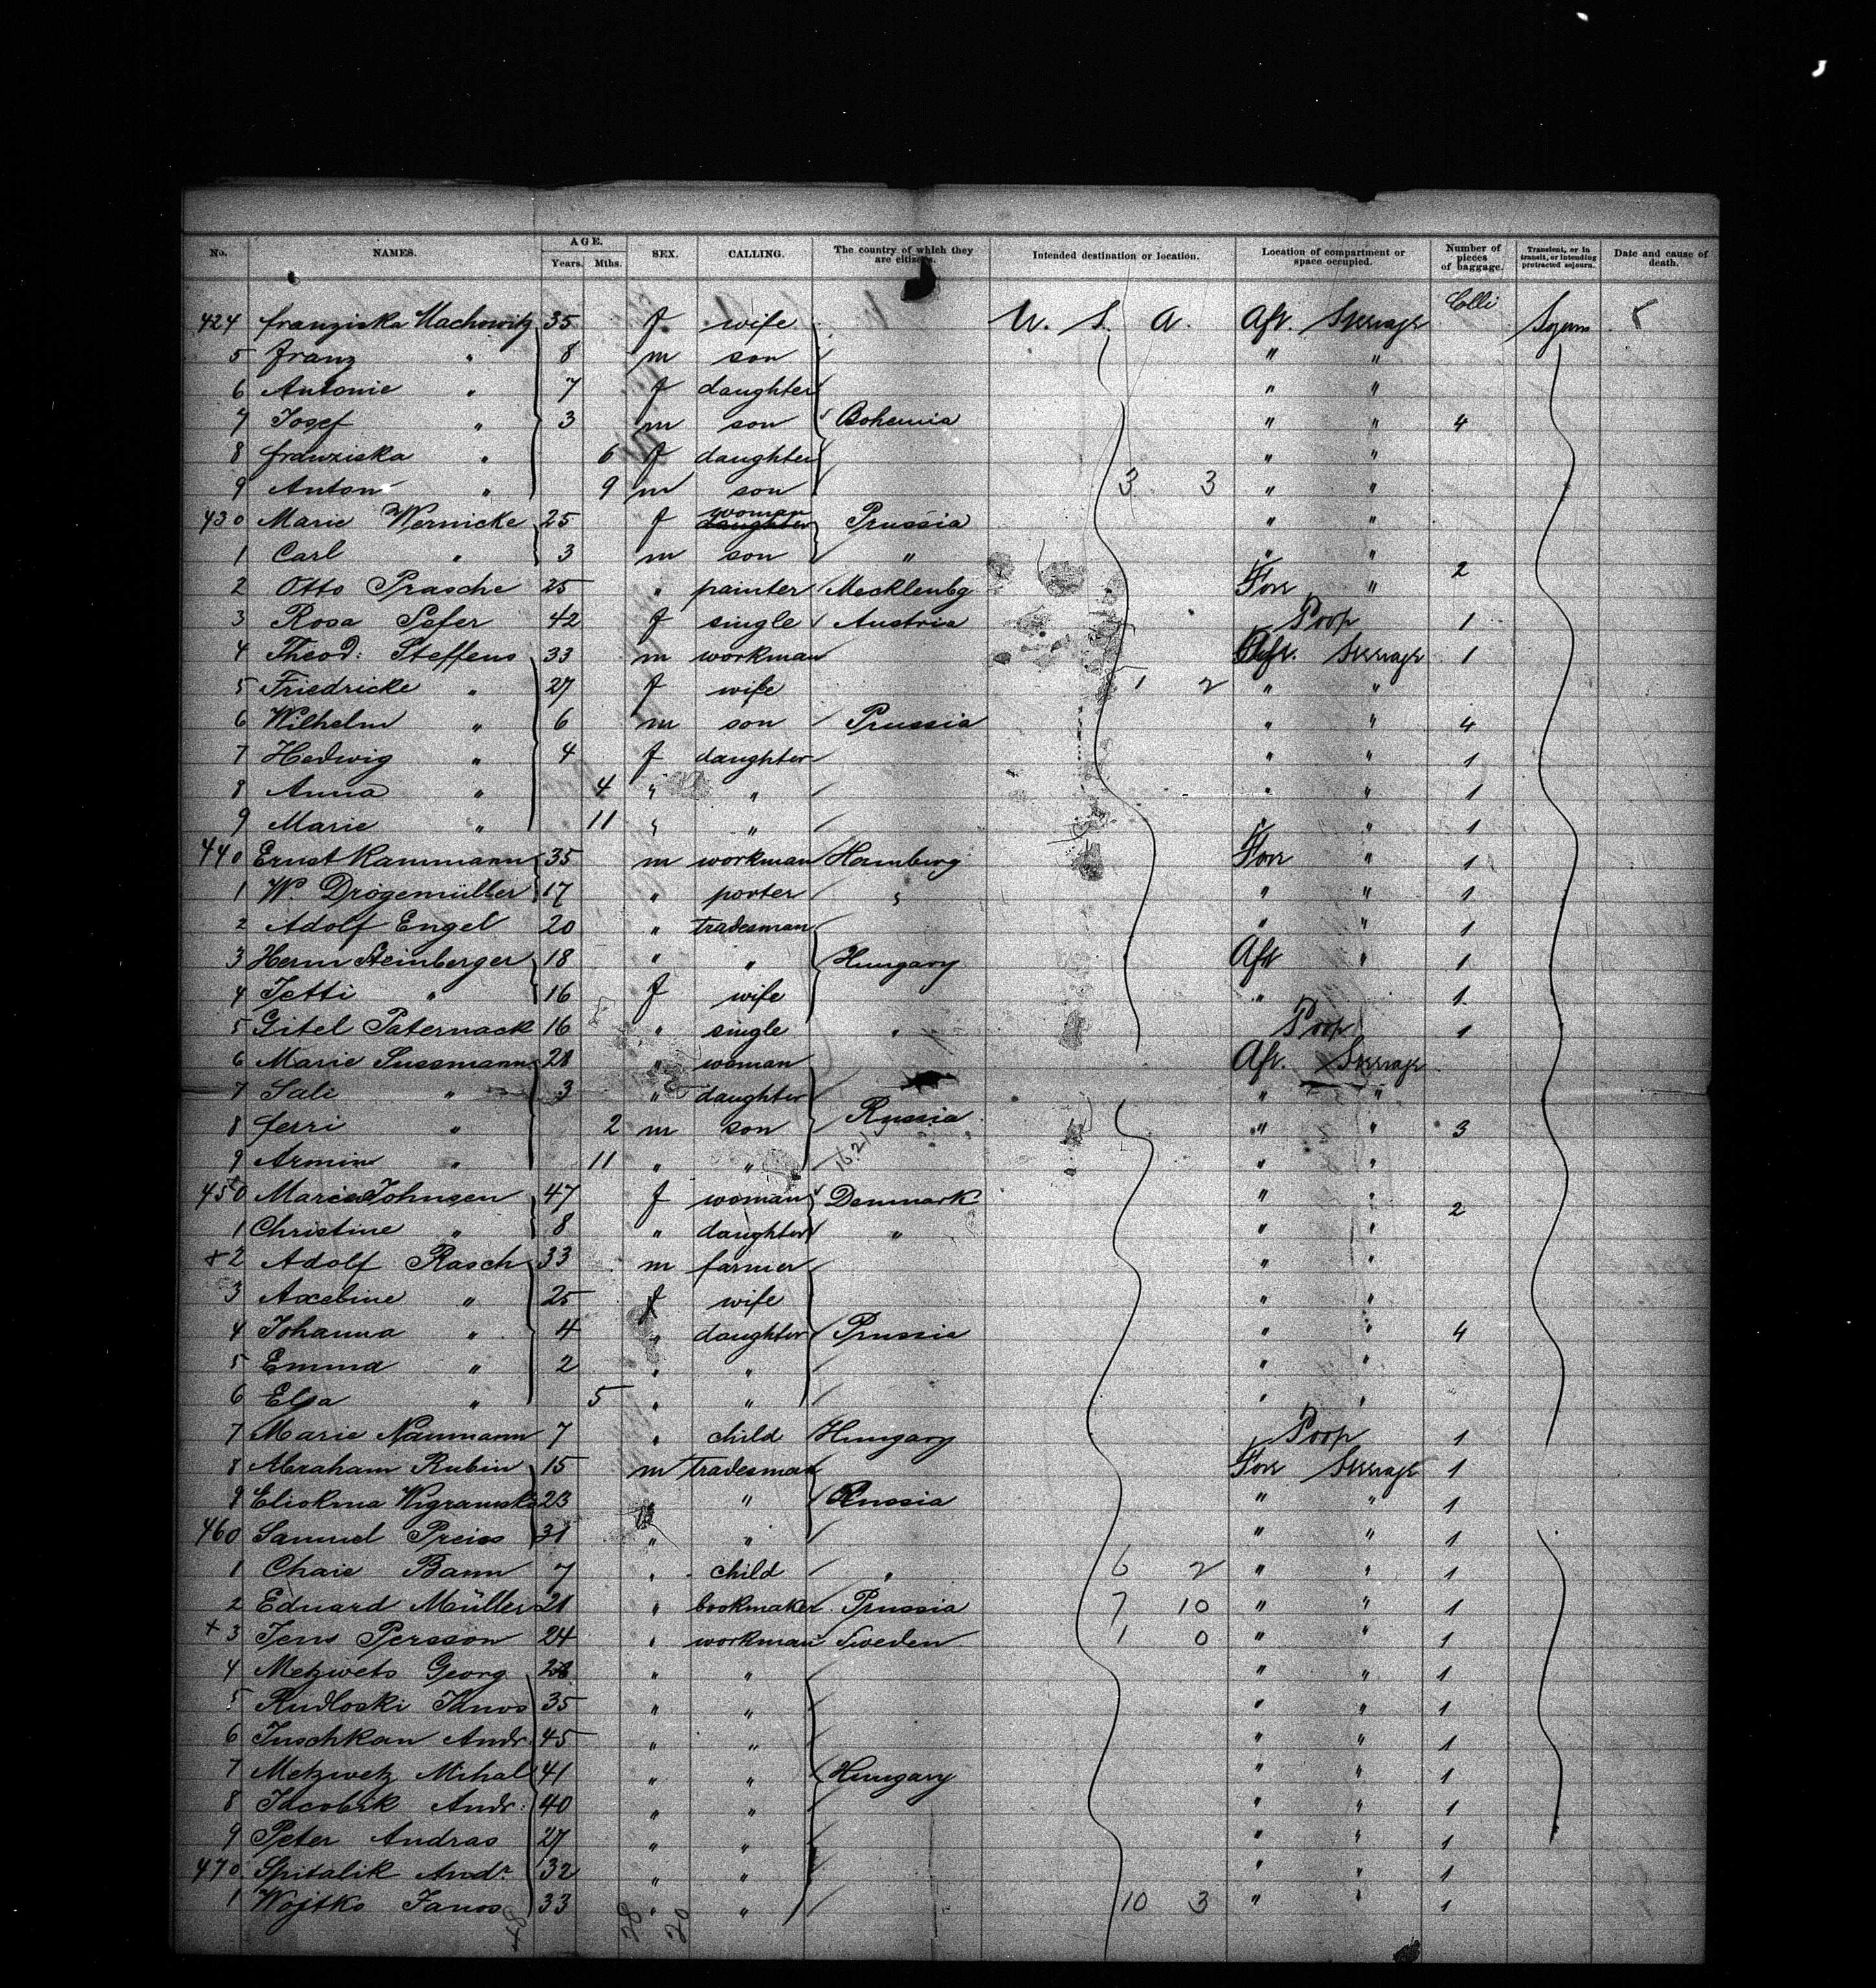 No. NAMES. AGE. Years. Mths. SEX. CALLING. The country of which they are citizens. Intended destination or location. Location of compartment or space occupied. Number of pieces of baggage. Transient, or in transit, or intending protracted sojourn. Date and cause of death.
Colli
424 Franziska 35 f wife U. S. A. Aft. Steerage
5 Franz " 8 m son " "
6 Antonie " 7 f daughter " "
7 Josef " 3 m son Bohemia " " 4
8 Franziska " 6 f daughter " "
9 Anton " 9 m son 3 3 " "
430 Marie Wernicke 25 f woman Prussia " "
1 Carl " 3 m son " " "
2 Otto Prasche 25 " painter Mecklenbg Fore " 2
3 Rosa Sefer 42 f single Austria Poop 1
4 Theod: Steffens 33 m workman Aft. Steerage 1
5 Friedricke " 27 f wife 1 2 " "
6 Wilhelm " 6 m son Prussia " " 4
7 Hedwig " 4 f daughter " " 1
8 Anna " 4 " " " " 1
9 Marie " 11 " " " " 1
440 Ernst Kammann 35 m workman Hamburg Fore " 1
1 W. Drögemüller 17 " porter " " " 1
2 Adolf Engel 20 " tradesman " " 1
3 Herm Steinberger 18 " " Hungary Aft " 1
4 Jetti " 16 f wife " 1
5 Gitel Paternack 16 " single " Poop 1
6 Marie Sussmann 28 " woman Aft. Steerage
7 Sali " 3 " daughter " "
8 Ferri " 2 m son Russia " " 3
9 Armin " 11 " " " "
450 Maria Johnsen 47 f woman Denmark " " 2
1 Christine " 8 " daughter " " "
+ 2 Adolf Rasch 33 m farmer " "
3 Axeline " 25 f wife " "
4 Johanna " 4 " daughter Prussia " " 4
5 Emma " 2 " " " "
6 Elsa " 5 " " " "
7 Marie Naumann 7 " child Hungary Poop 1
8 Abraham Rubin 15 m tradesman Fore Steerage 1
9 23 " " Russia " " 1
460 Samuel Preiss 31 " " " " 1
1 Chaie Bann 7 " child " 6 2 " " 1
2 Eduard Müller 21 " bookmaker Prussia 7 10 " " 1
+ 3 Jens Persson 24 " workman Sweden 1 0 " " 1
4 Metzwets Georg 28 " " " " 1
5 Rudloski Janos 35 " " " " 1
6 Juschkan Andr. 45 " " " " 1
7 Metzwetz Mihal 41 " " Hungary " " 1
8 Jacobik Andr. 40 " " " " 1
9 Peter Andras 27 " " " " 1
470 Spitalik Andr. 32 " " " " 1
1 Wojtko Janos 33 " " 10 3 " " 1
48 28 20